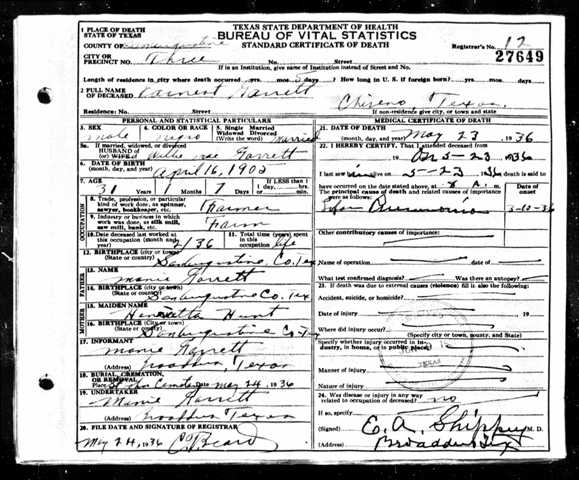 TEXAS STATE DEPARTMENT OF HEALTH
BUREAU OF VITAL STATISTICS
STANDARD CERTIFICATE OF DEATH
1 PLACE OF DEATH
STATE OF TEXAS
COUNTY OF
CITY OR
PRECINCT NO. Three No. Street
Registrar's No. 12
27649
If in an Institution, give name of Institution instead of Street and No.
Length of residence in city where death occurred yrs. mos. 5 days? How long in U. S. if foreign born? yrs. mos. days
2 FULL NAME
OF DECEASED Earnest Garrett
Residence: No. Street Chireno Texas.
If non-residence give city, or town and state
PERSONAL AND STATISTICAL PARTICULARS
3. SEX male
4. COLOR OR RACE negro
5. Single Married Widowed Divorced Married
5a. If married, widowed, or divorced
HUSBAND OF
(or) WIFE Willie Garrett
6. DATE OF BIRTH
(month, day, and year) April 16, 1905
7. AGE 31 Years 1 Months 7 Days If less than 1 day
hrs. min.
OCCUPATION
8. Trade, profession, or particular kind of work done, as spinner, sawyer, bookkeeper, etc. Farmer
9. Industry or business in which work was done, as silk mill, saw mill, bank, etc. Farm
10. Date deceased last worked at this occupation (month and year) /36
11. Total time (years) spent in this occupation life
12. BIRTHPLACE (city or town)
(State or country) San Augustine Co. Tex
FATHER
13. NAME Manie Garrett
14. BIRTHPLACE (city or town)
(State or country) San Augustine Co. Tex
MOTHER
15. MAIDEN NAME Henrietta Hunt
16. BIRTHPLACE (City or town)
(State or country) San Augustine Co Tex
17. INFORMANT Manie Garrett
(Address) Texas
18. BURIAL, CREMATION, OR REMOVAL
Place Cemetery Date May 24, 1936
19. UNDERTAKER Manie Garrett
(Address) Texas
20. FILE DATE AND SIGNATURE OF REGISTRAR
May 24, 1936 Beard
MEDICAL CERTIFICATE OF DEATH
21. DATE OF DEATH
(month, day, and year) May 23 1936
22. I HEREBY CERTIFY, That I attended deceased from
19 to 5-23 1936
I last saw him on 5-23 1936 death is said to
have occurred on the date stated above, at m.
The principal cause of death and related causes of importance were as follows:
Date of onset
Other contributory causes of importance:
Name of operation Date of
What test confirmed diagnosis? Was there an autopsy?
23. If death was due to external causes (violence) fill in also the following:
Accident, suicide, or homicide?
Date of injury 19
Where did injury occur?
(Specify city or town, county, and State)
Specify whether injury occurred in industry, in home, or in public place.
Manner of injury
Nature of injury
TEXAS
24. Was disease or injury in any way related to occupation of deceased? no
If so, specify
(Signed) E. A. Shippey M. D.
(Address) Broaddus Tex